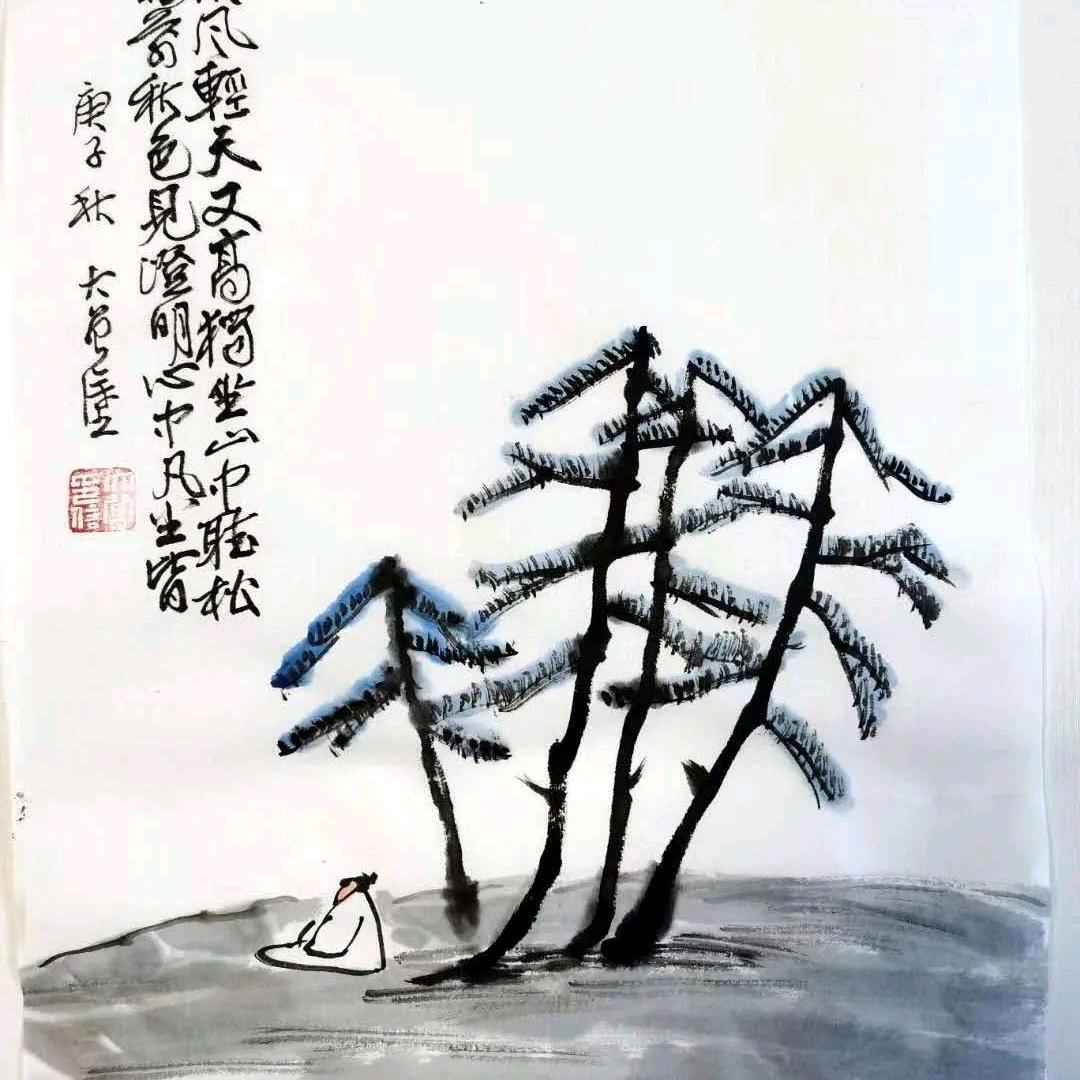 风輕天又高獨坐山中聽松
前秋色見澄明心中凡尘皆
庚子秋
大